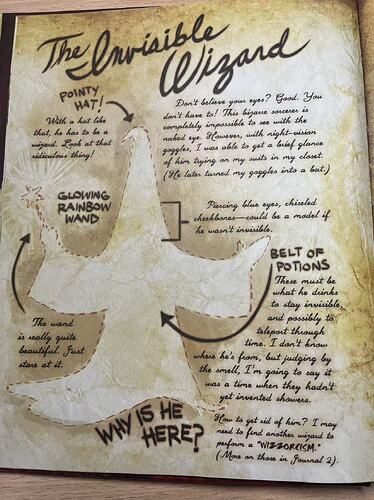 The Invisible
Wizard
POINTY
HAT!
With a hat like
that, he has to be a
wizard. Look at that
ridiculous thing!
Don't believe your eyes? Good. You
don't have to! This bizarre sorcerer is
completely impossible to see with the
naked eye. However, with night-vision
goggles, I was able to get a brief glance
of him trying on my suits in my closet.
(He later turned my goggles into a bat.)
GLOWING
RAINBOW
WAND
Piercing blue eyes, chiseled
cheekbones—could be a model if
he wasn't invisible.
BELT OF
POTIONS
These must be
what he drinks
to stay invisible,
and possibly to
teleport through
time. I don't know
where he's from, but judging by
the smell, I'm going to say it
was a time when they hadn't
yet invented showers.
The wand
is really quite
beautiful. Just
stare at it.
WHY IS HE
HERE?
How to get rid of him? I may
need to find another wizard to
perform a "WIZZORCISM."
(More on those in Journal 2).